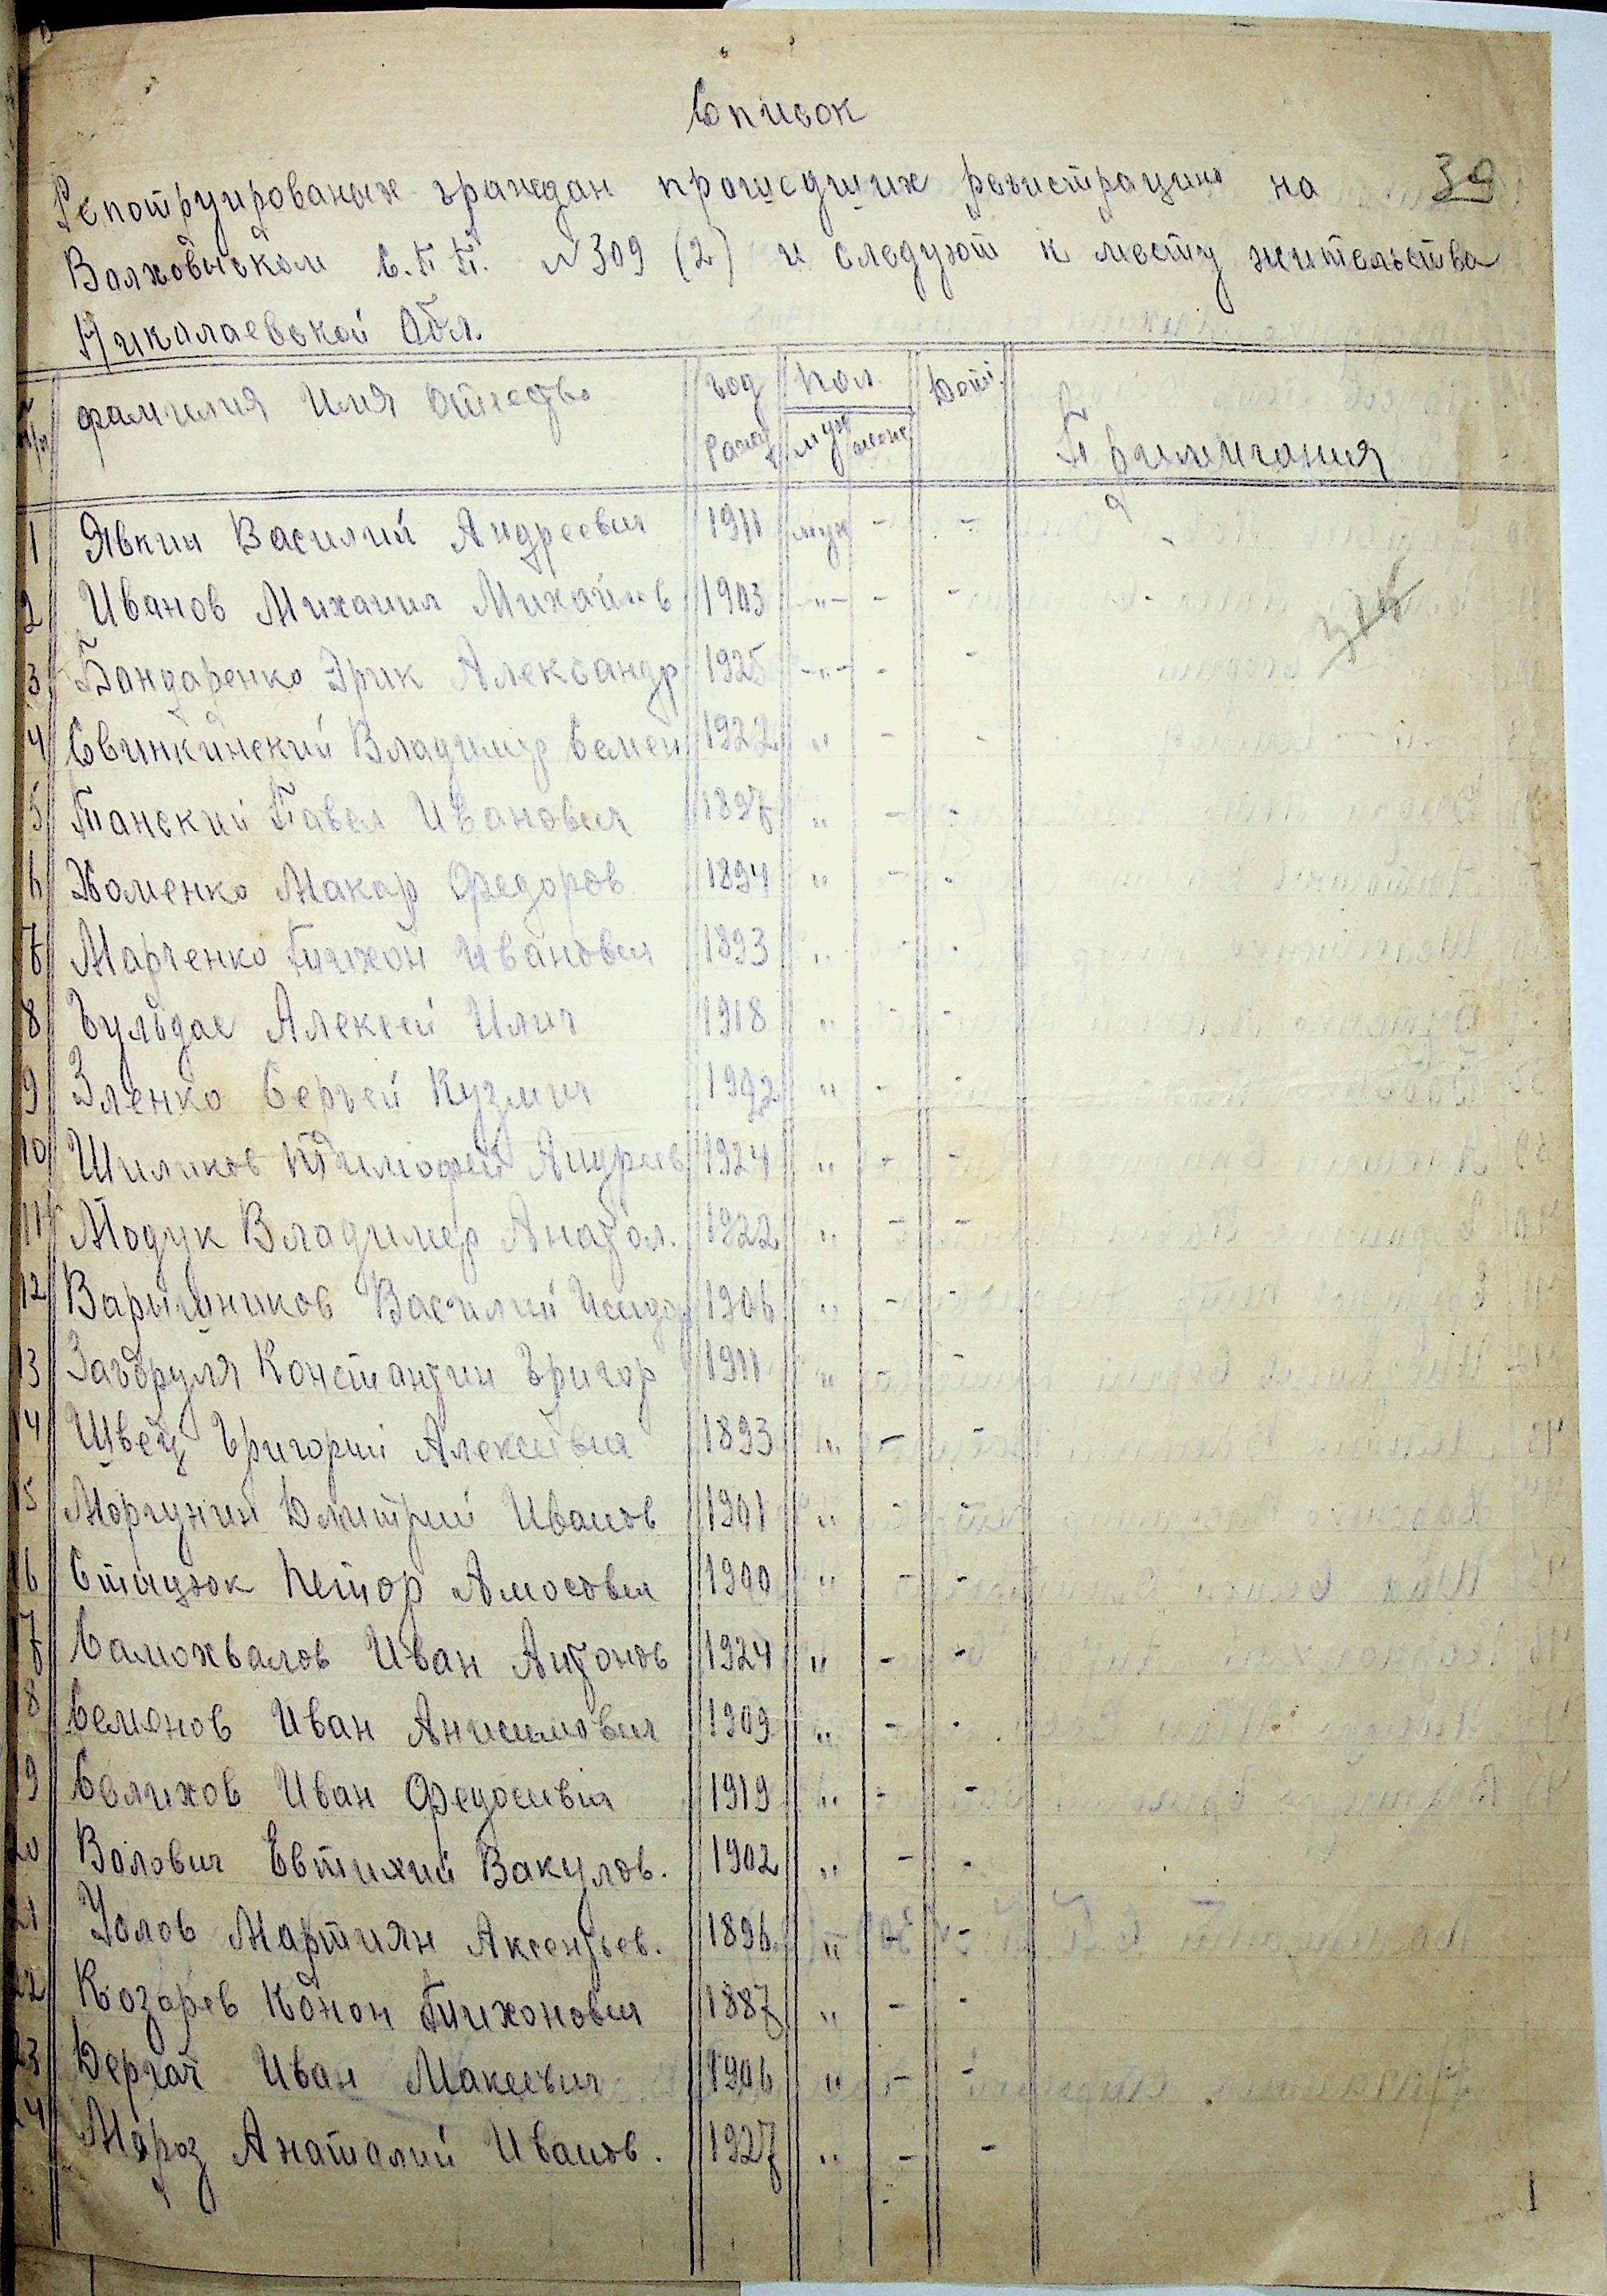 Список
Репотруированых граждан прошедших регистрацию на 39
Валковыском С.П.П. №309 (2) и следуют к месту жительства
Николаевской Обл.
№ п/п фамилия Имя Отчество год рожд Пол муж женс Дети Примичания
1 Явкин Василий Андреевич 1911 муж - -
2 Иванов Михаил Михайлов 1903 -"- - -
3 Бандаренко Эрик Александр 1925 -"- - -
4 Свинкинский Владимир Семен 1922 " - -
5 Танский Павел Иванович 1897 " - -
6 Хоменко Макар Федоров 1894 " - -
7 Марченко Тихон Иванович 1893 " - -
8 Гульдас Алексей Илич 1918 " - -
9 Зленко Сергей Кузмич 1992 " - -
10 Шиликов Тимофей Андреев 1924 " - -
11 Модук Владимер Анатол. 1922 " - -
12 Варишников Василий Исидо 1906 " - -
13 Загоруля Константин Григор 1911 " - -
14 Швец Григорий Алексеевич 1893 " - -
15 Моргунин Дмитрий Иванов 1901 " - -
16 Стацюк Петор Амосович 1900 " - -
17 Самохвалов Иван Антонов 1924 " - -
18 Семонов Иван Анисимович 1909 " - -
19 Солихов Иван Федосиевич 1919 " - -
20 Волович Евтихий Вакулов. 1902 " - -
21 Уолов Мартиян Аксентьев. 1896 " - -
22 Козарев Конон Тихонович 1887 " - -
23 Дергач Иван Макеевич 1906 " - -
24 Мороз Анаталий Иванов. 1927 " - -
1